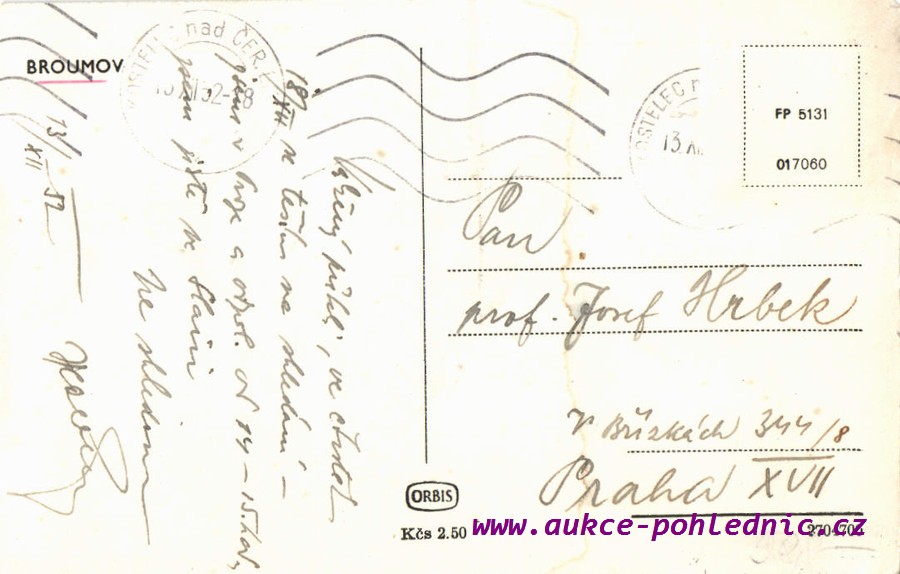 BROUMOV
KOSTELEC nad ČER.
13.XII.52-8
KOSTELEC n
13.XI
FP 5131
017060
13/XII 52
Vážený příteli, ve čtvrtek
18/XII se těším na shledání –
jsem v Praze a odpol. od 14–15 hod.
jsem jistě ve Slavii
Na shledanou
Pan
prof. Josef Hrbek
V Břízkách 344/8
Praha XVII
ORBIS
Kčs 2.50
www.aukce-pohlednic.cz